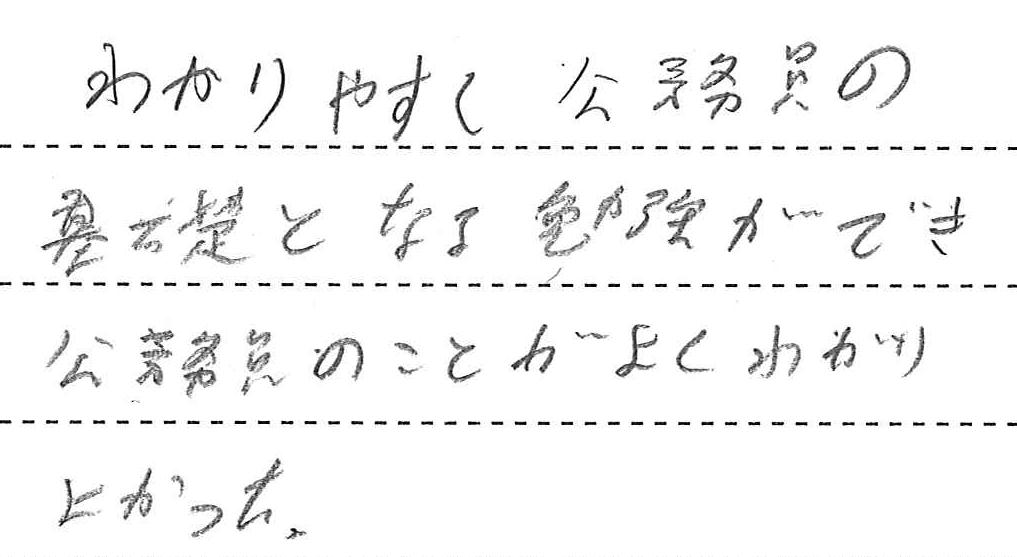 わかりやすく公務員の
基礎となる勉強ができ
公務員のことがよくわかり
よかった。